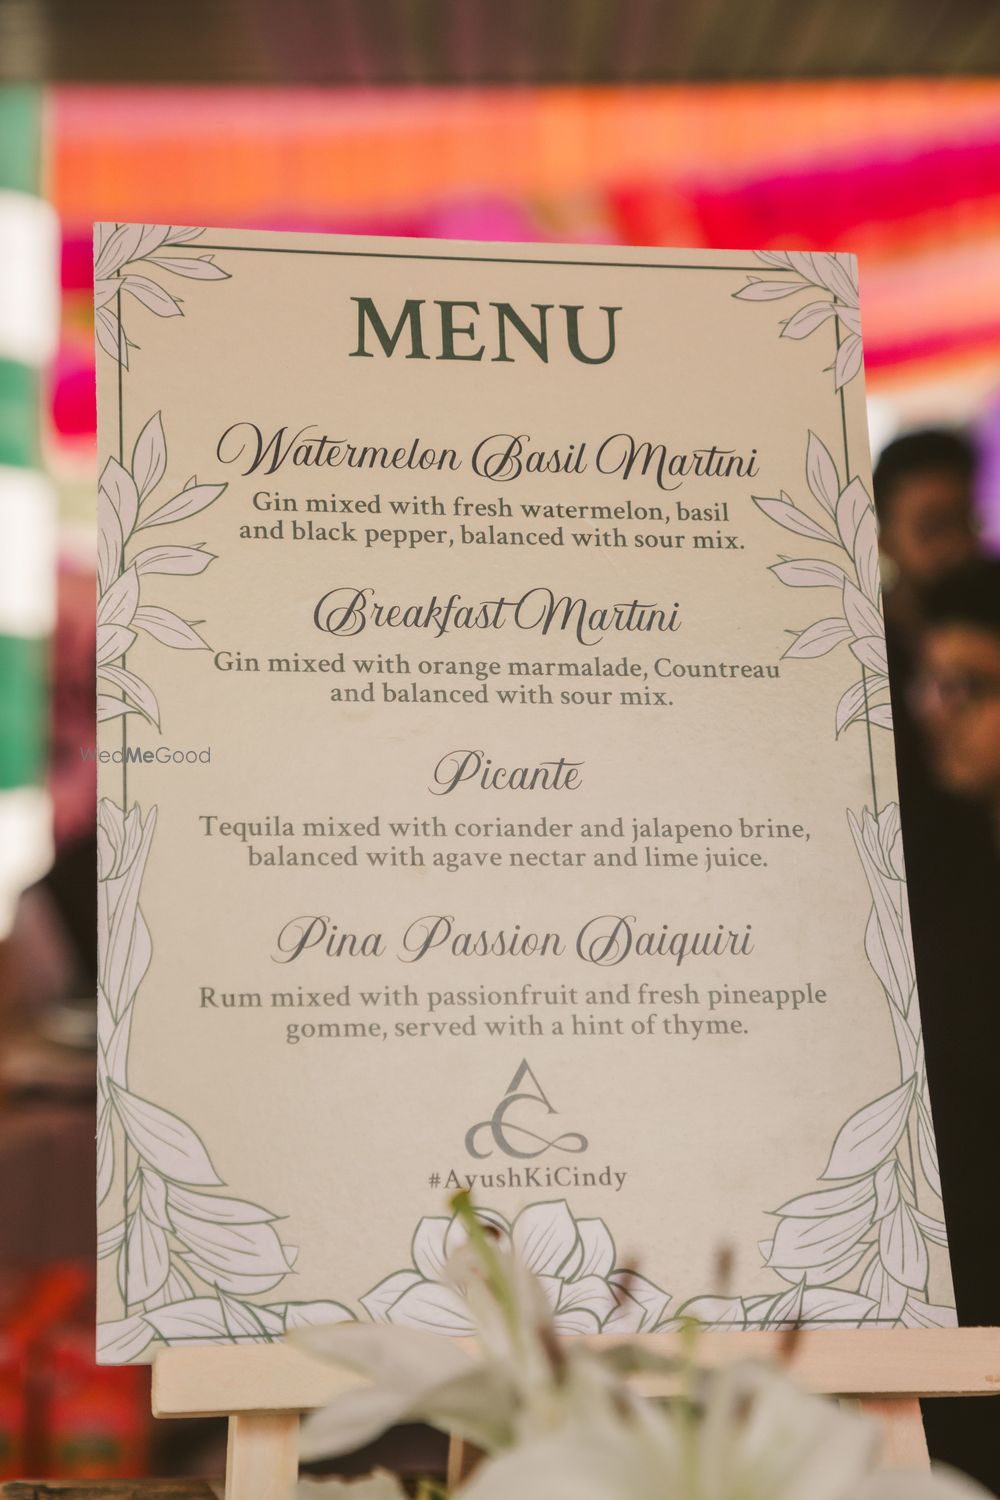 MENU
Watermelon Basil Martini
Gin mixed with fresh watermelon, basil
and black pepper, balanced with sour mix.
Breakfast Martini
Gin mixed with orange marmalade, Countreau
and balanced with sour mix.
WedMeGood
Picante
Tequila mixed with coriander and jalapeno brine,
balanced with agave nectar and lime juice.
Pina Passion Daiquiri
Rum mixed with passionfruit and fresh pineapple
gomme, served with a hint of thyme.
AC
#AyushKiCindy